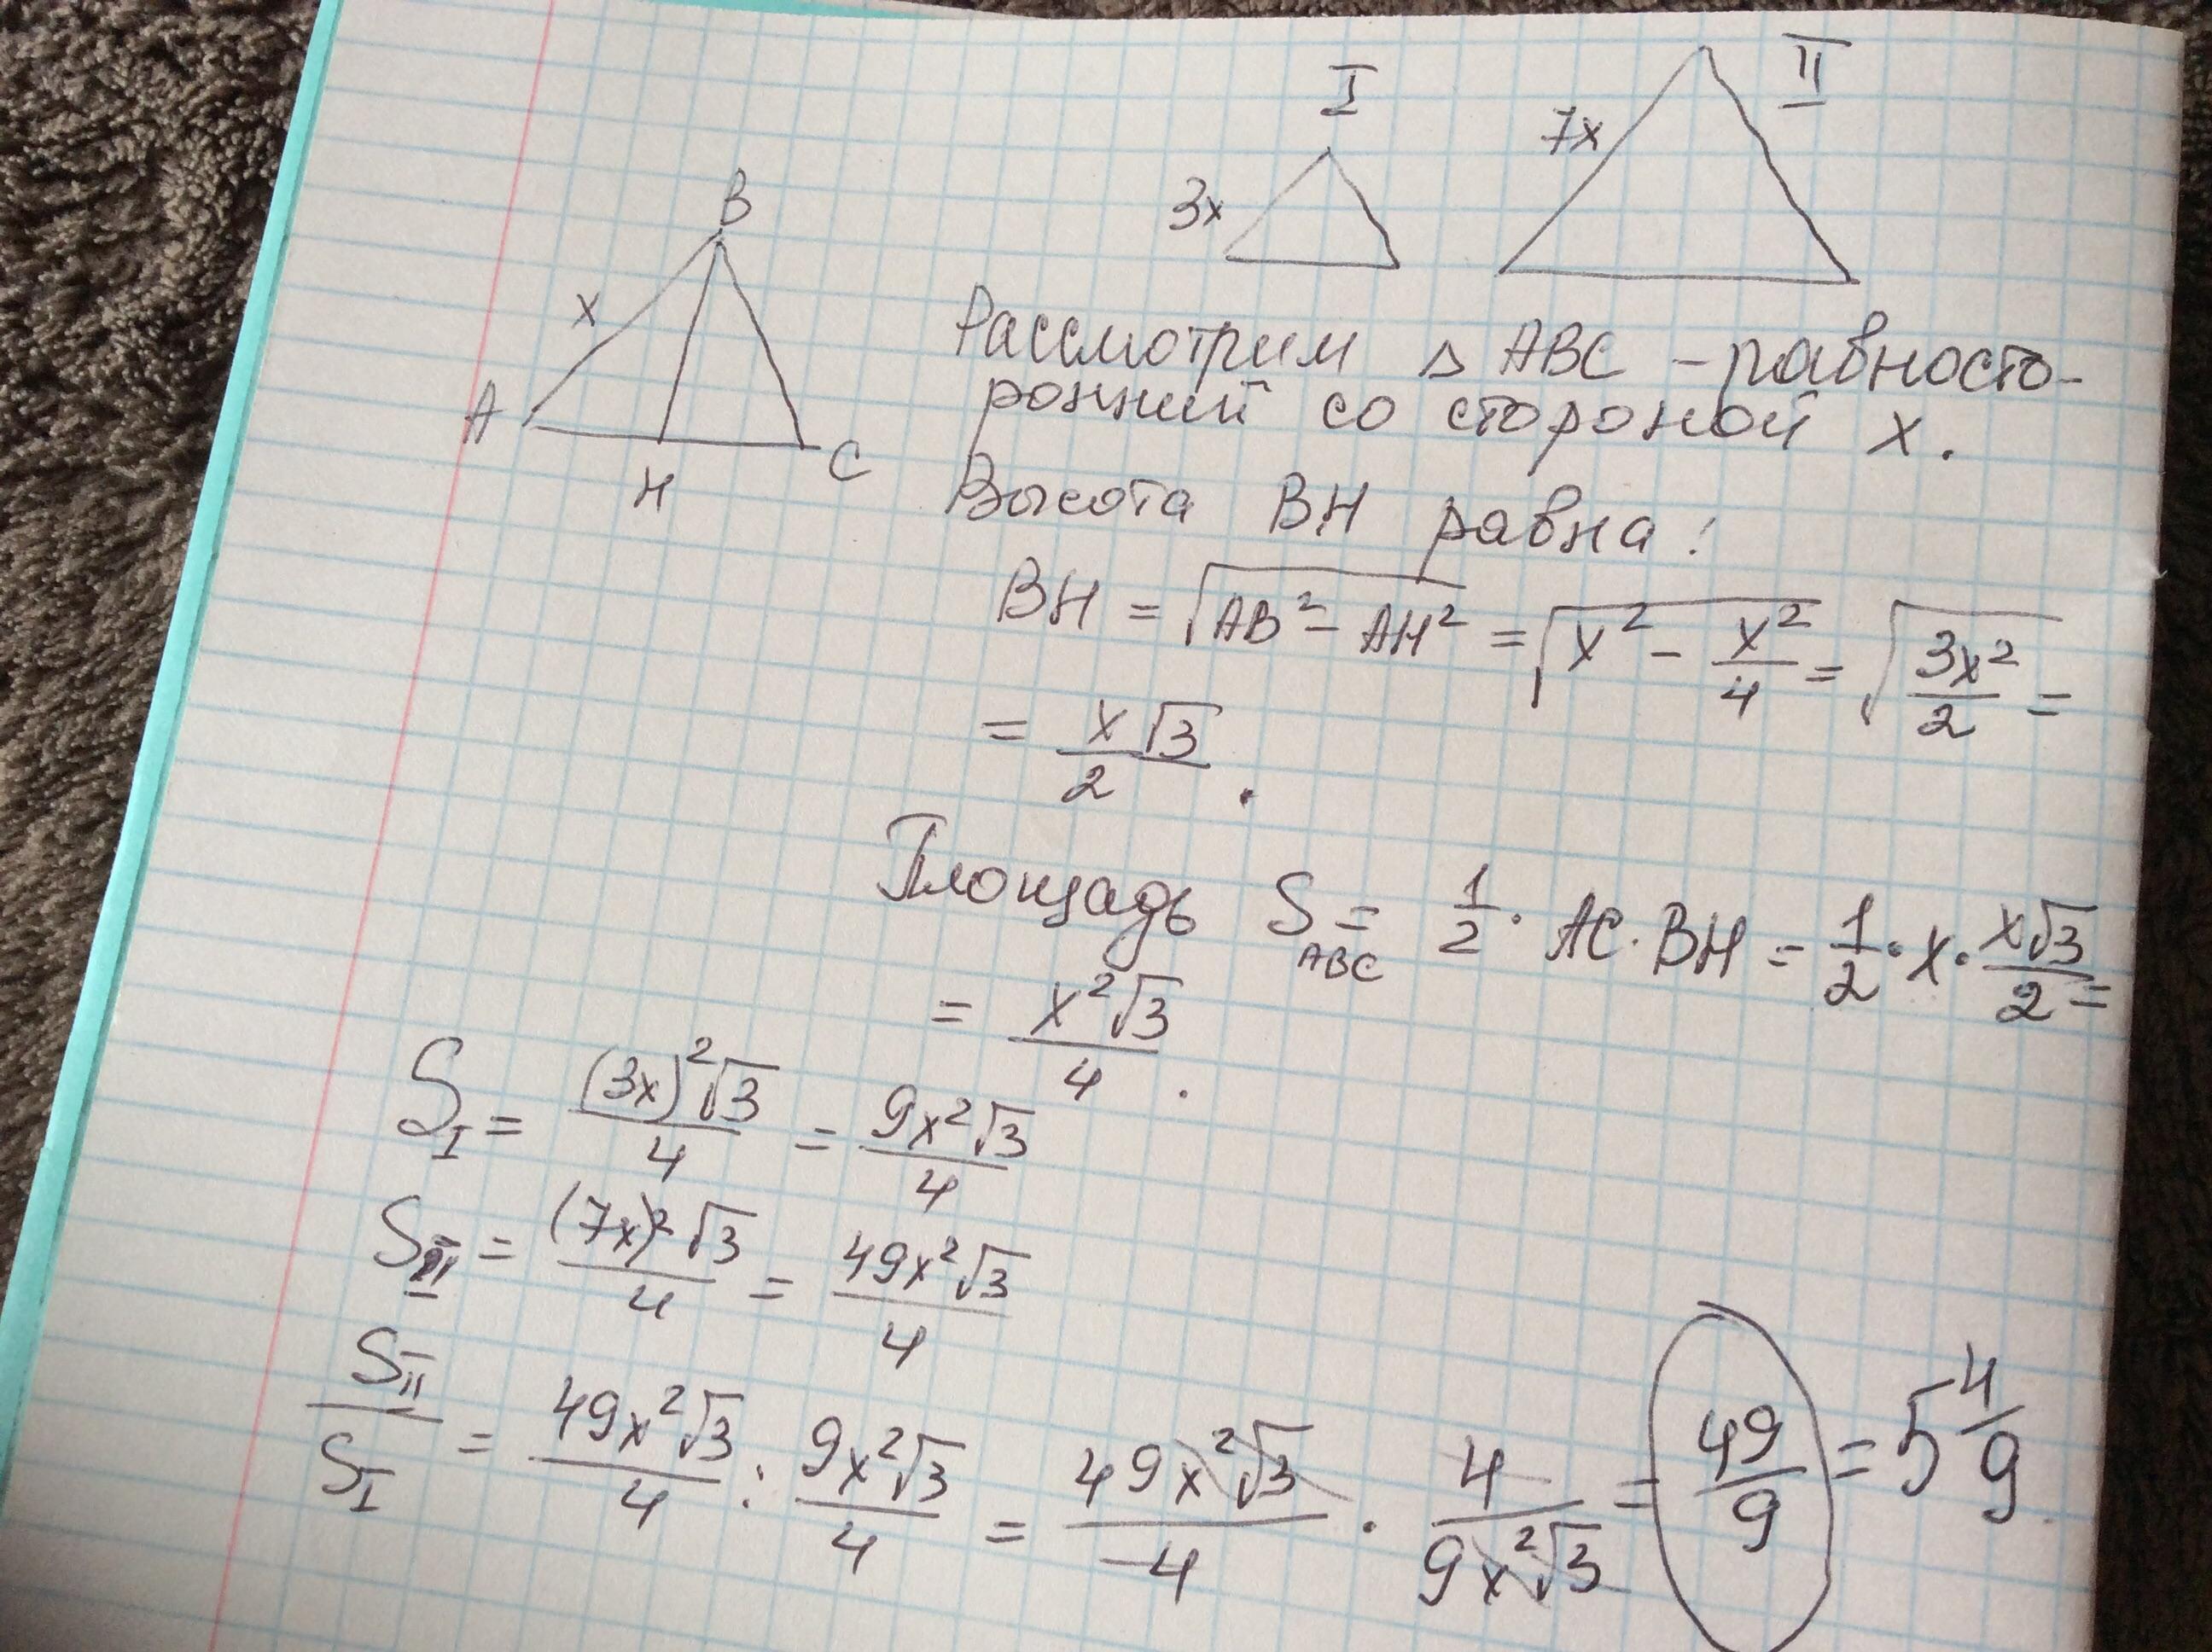 I
II
3x
7x
B
x
A
H
C
Рассмотрим △ ABC – равносто-
ронний со стороной x.
Высота BH равна:
BH = √(AB² – AH²) = √(x² – x²/4) = √(3x²/2) =
= x√3/2.
Площадь S ABC = 1/2 · AC · BH = 1/2 · x · x√3/2 =
= x²√3/4.
S I = (3x)²√3/4 = 9x²√3/4
S II = (7x)²√3/4 = 49x²√3/4
S II/S I = 49x²√3/4 : 9x²√3/4 = 49x²√3/4 · 4/9x²√3 = 49/9 = 5 4/9